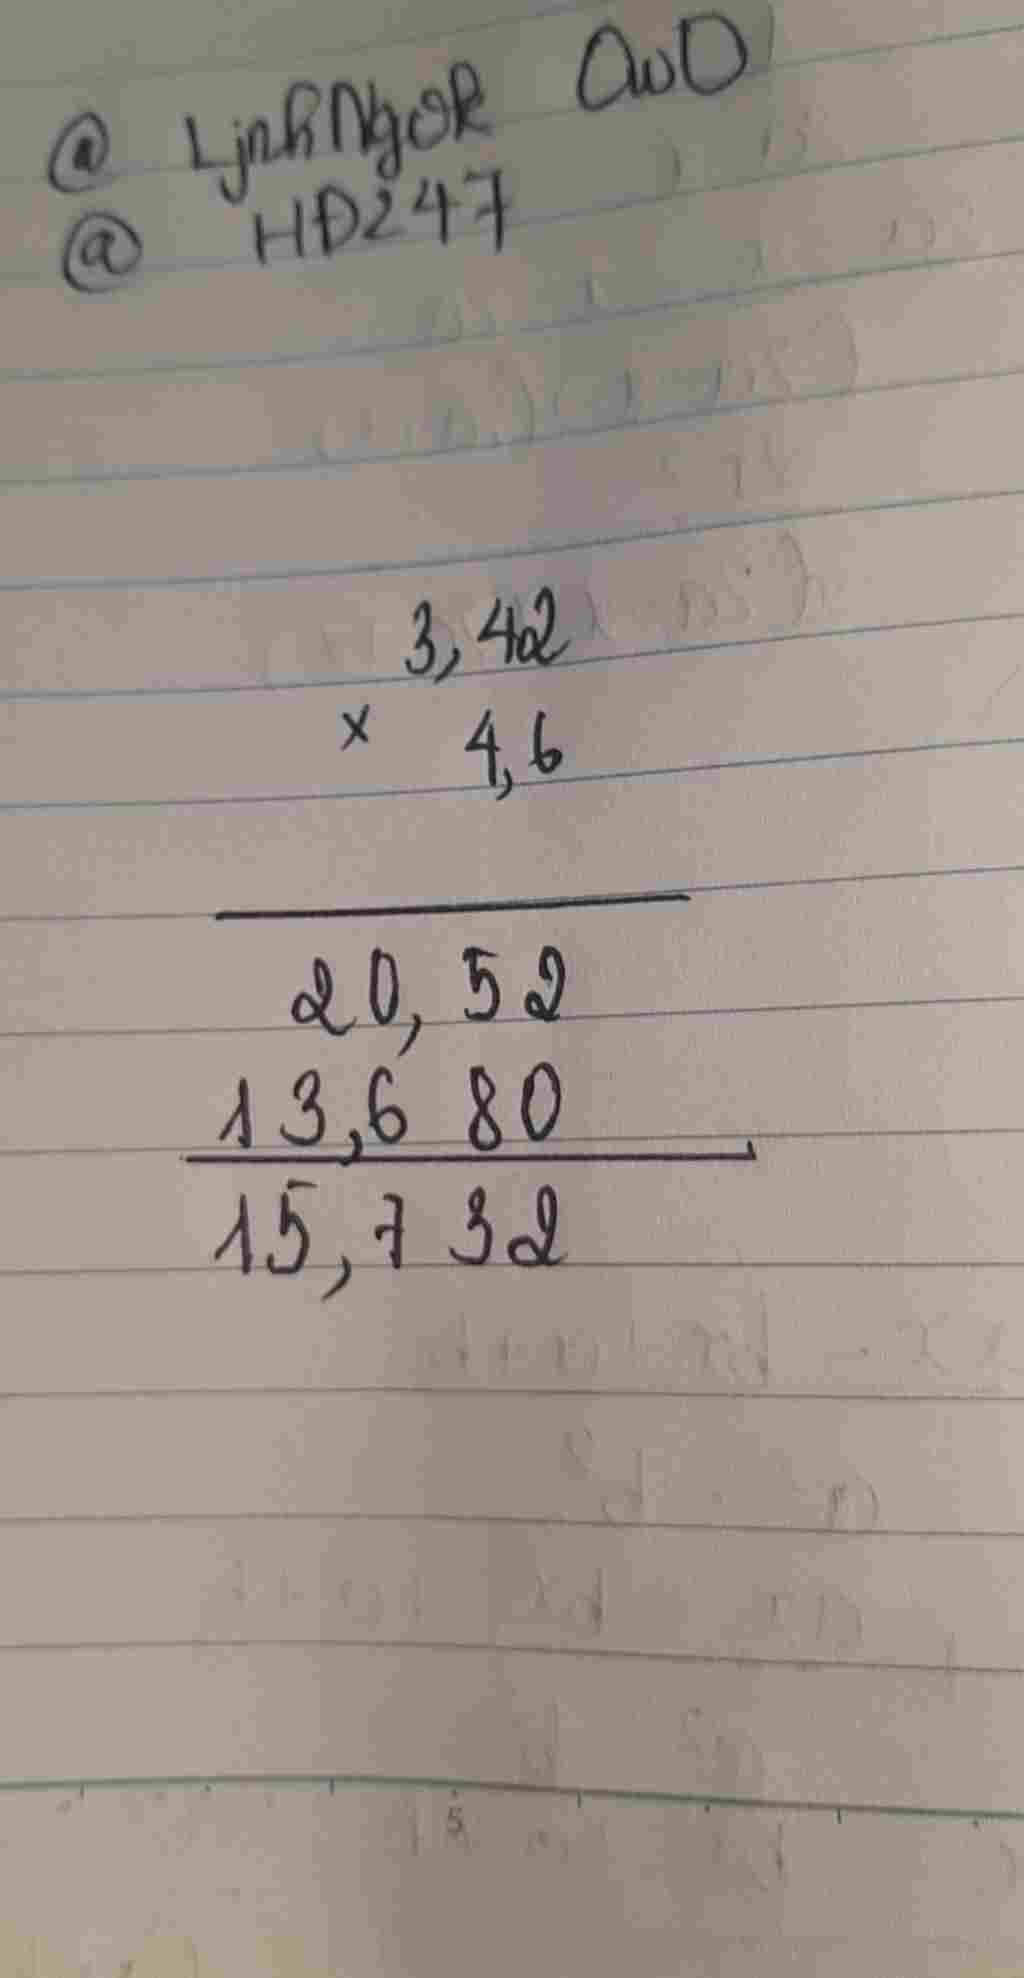 @ LjnhNgok OwO
@ HĐ247
3,42
x 4,6
20,52
13,680
15,732
5